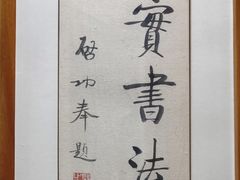 實書法
啓功奉題